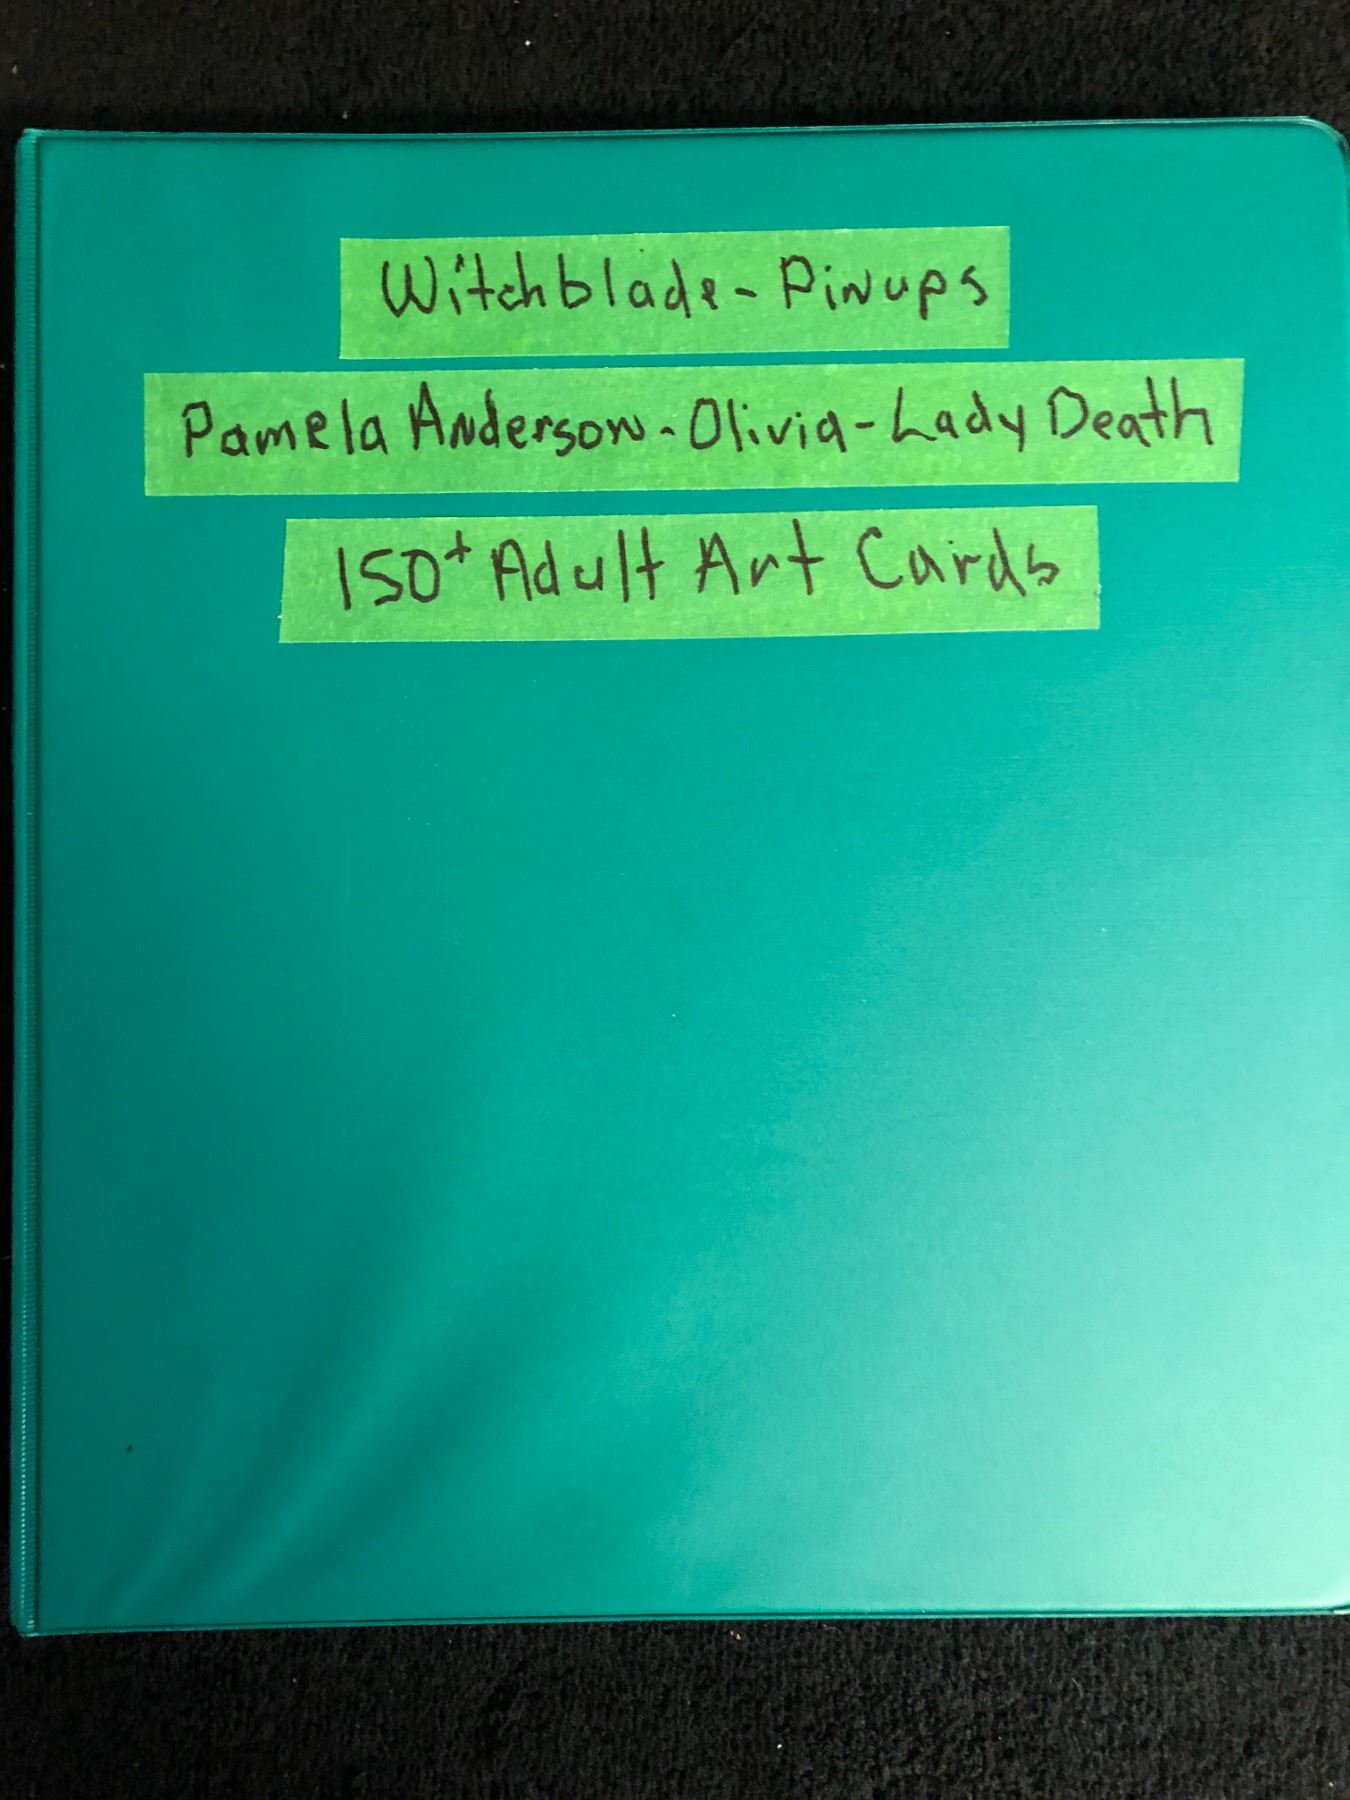 Witchblade - Pinups
Pamela Anderson - Olivia - Lady Death
150+ Adult Art Cards